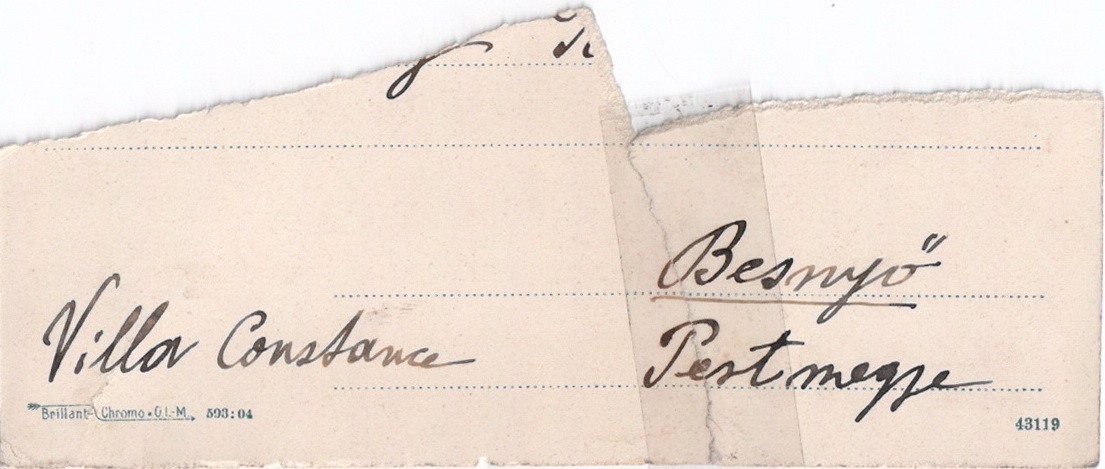 Besnyő
Villa Constance
Pest megye
Brillant-Chromo • O.L-M. 593:04
43119